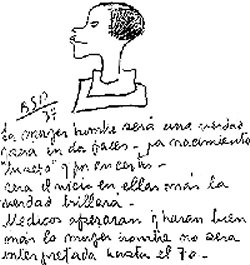 BSP
37
La mujer hombre será una verdad
para en dos fases - ya nacimiento
y por
será el inicio en ellas más la
verdad brillará -
Medicos operaran y haran bien
más la mujer hombre no será
interpretada hasta el 70 -